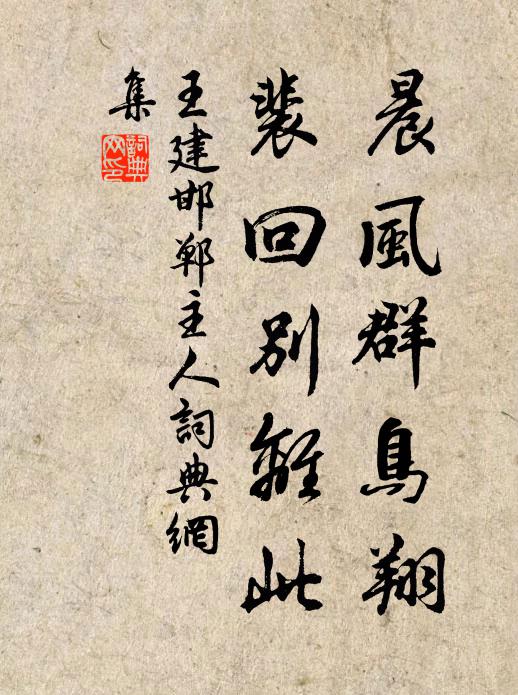 晨風群鳥翔
裴回別離此
王建邯鄲主人詞典網
集
詞典
网印